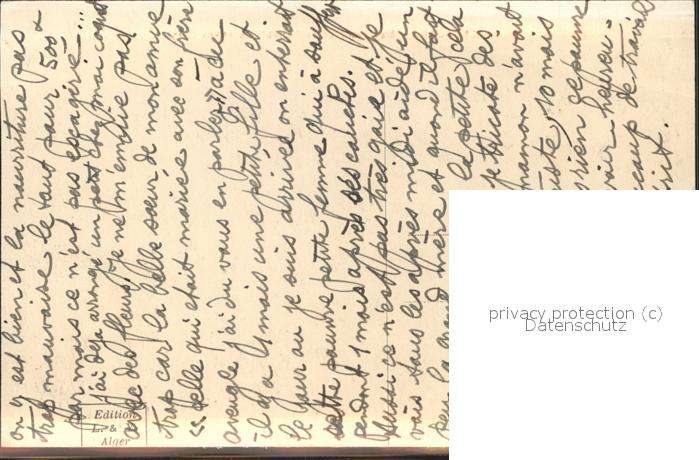 on y est bien et la nourriture pas
trop mauvaise le tout pour 500
par mois ce n'est pas exagéré...
j'ai déja arrangé un petit chez moi
avec des fleurs. Je ne m'ennuie pas
trop car la belle sœur de mon amie
celle qui était mariée avec son frère
aveugle j'ai du vous en parler a eu
il y a 4 mois une petite fille et
le jour ou je suis arrivée on enterrait
cette pauvre petite femme qui a souffert
pendant 4 mois après ses couches.
Aussi ce n'est pas très gaie et je
vais tous les après midi aidé un
peu la grand mère et quand il fait
la petite, cela
je tricote des
maman n'avait
juste 10 mais
rien ge pauvre
voir heureu-
beaucoup de travail
Edition
L. &
Alger
privacy protection (c)
Datenschutz